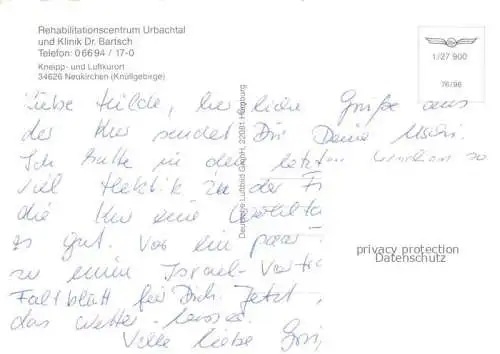 Rehabilitationscentrum Urbachtal
und Klinik Dr. Bartsch
Telefon: 0 66 94 / 17-0
Kneipp- und Luftkurort
34626 Neukirchen (Knüllgebirge)
1/27 900
76/96
Deutsche Luftbild GmbH, 22081 Hamburg
Liebe Hilde, herzliche Grüße aus
der Kur sendet Dir Deine Uschi.
Ich hatte in den letzten Wochen so
viel Hektik in der
die Kur eine
es gut. Vor ein paar
zu einem Israel-
Faltblatt für Dich. Jetzt
das Wetter besser.
Viele liebe
privacy protection
Datenschutz